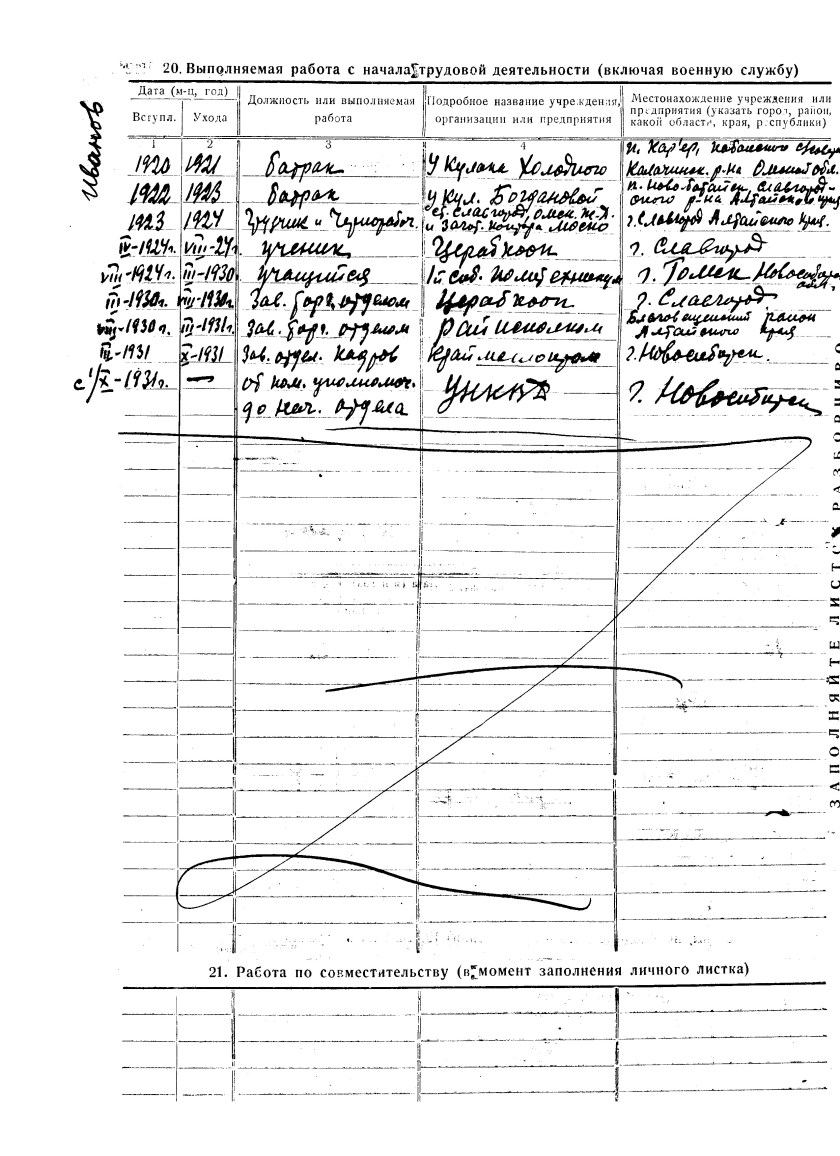 20. Выполняемая работа с начала трудовой деятельности (включая военную службу)
Иванов
Дата (м-ц, год)
Вступл. Ухода
Должность или выполняемая
работа
Подробное название учреждения,
организации или предприятия
Местонахождение учреждения или
предприятия (указать город, район,
какой области, края, республики)
1 2 3 4 5
1920 1921 батрак у Кулака Холодного
Калачинск. р-на Омской обл.
1922 1923 батрак у Кул. Богдановой
1923 1924 Грузчик и Чернорабоч.
ст. Славгород, Омск. ж.д.
и Загот. контора
г. Славгород Алтайского края.
IV-1924г. VIII-24г. ученик Церабкооп г. Славгород
VIII-1924г. III-1930 учащийся г. Томск
III-1930г. VIII-1930г. Зав. торг. отделом Церабкооп г. Славгород
VIII-1930г. III-1931г. Зав. торг. отделом райисполком
Благовещенский район
Алтайского края
III-1931 X-1931 Зав. отдел. кадров г. Новосибирск.
с 1/X-1931г. — от пом. уполномоч.
до нач. отдела
УНКВД г. Новосибирск
21. Работа по совместительству (в момент заполнения личного листка)
ЗАПОЛНЯЙТЕ ЛИСТОК РАЗБОРЧИВО